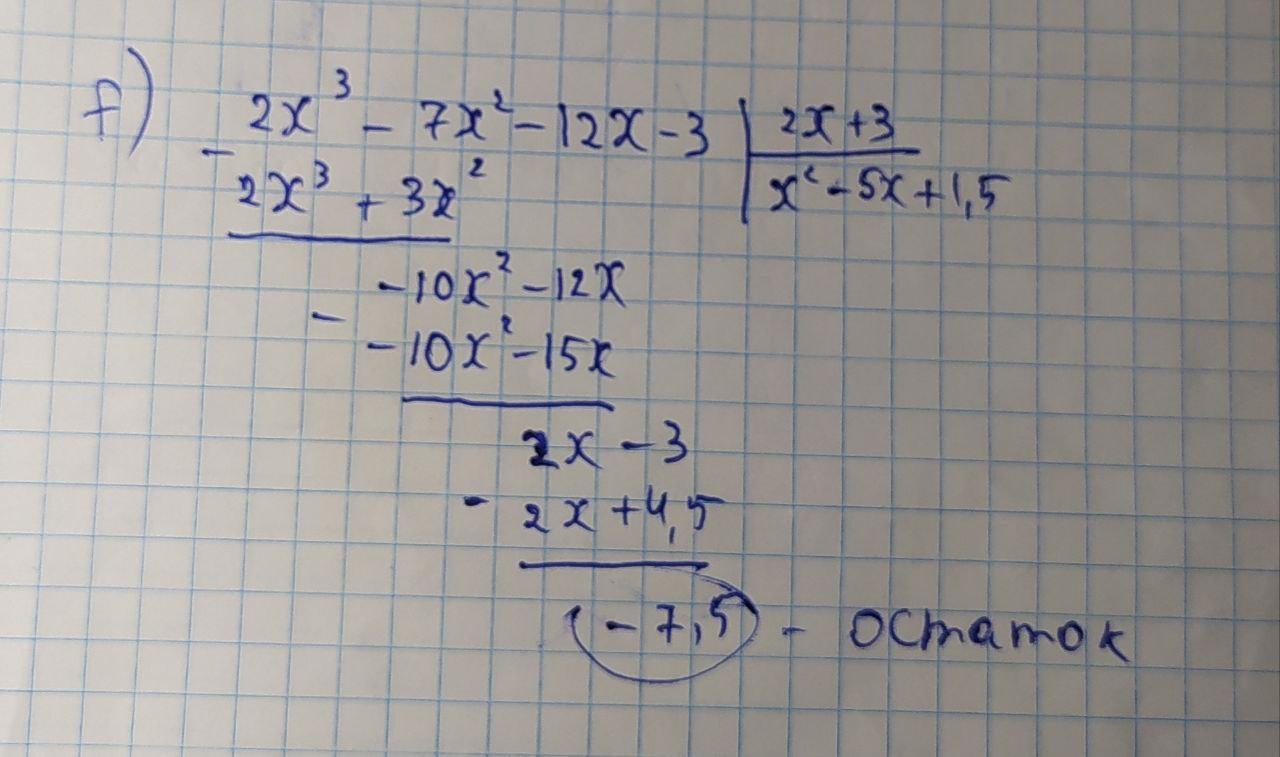 f) 2x³ - 7x² - 12x - 3 | 2x + 3
- 2x³ + 3x² | x² - 5x + 1,5
-10x² - 12x
- -10x² - 15x
2x - 3
- 2x + 4,5
-7,5 - остаток